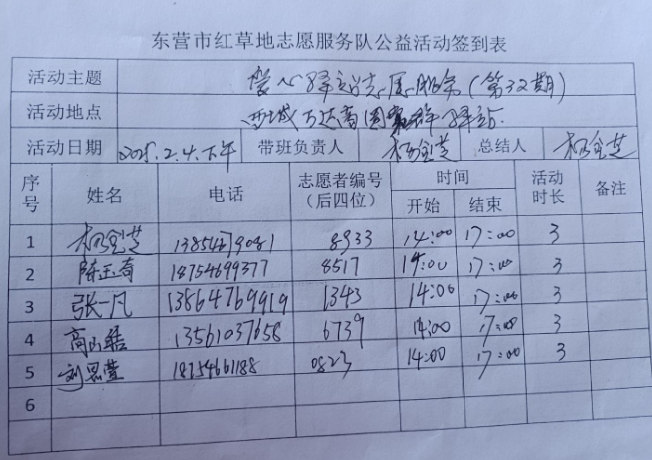 东营市红草地志愿服务队公益活动签到表
活动主题 驿站志愿服务(第32期)
活动地点 西城万达商圈 驿站
活动日期 2025.2.4.下午 带班负责人 杨金芝 总结人 杨金芝
序号 姓名 电话 志愿者编号(后四位) 时间 开始 结束 活动时长 备注
1 杨金芝 8933 14:00 17:00 3
2 陈玉奇 18754699377 8517 14:00 17:00 3
3 张一凡 13864769919 1343 14:00 17:00 3
4 13561037658 6739 14:00 17:00 3
5 刘思莹 18754661188 0823 14:00 17:00 3
6